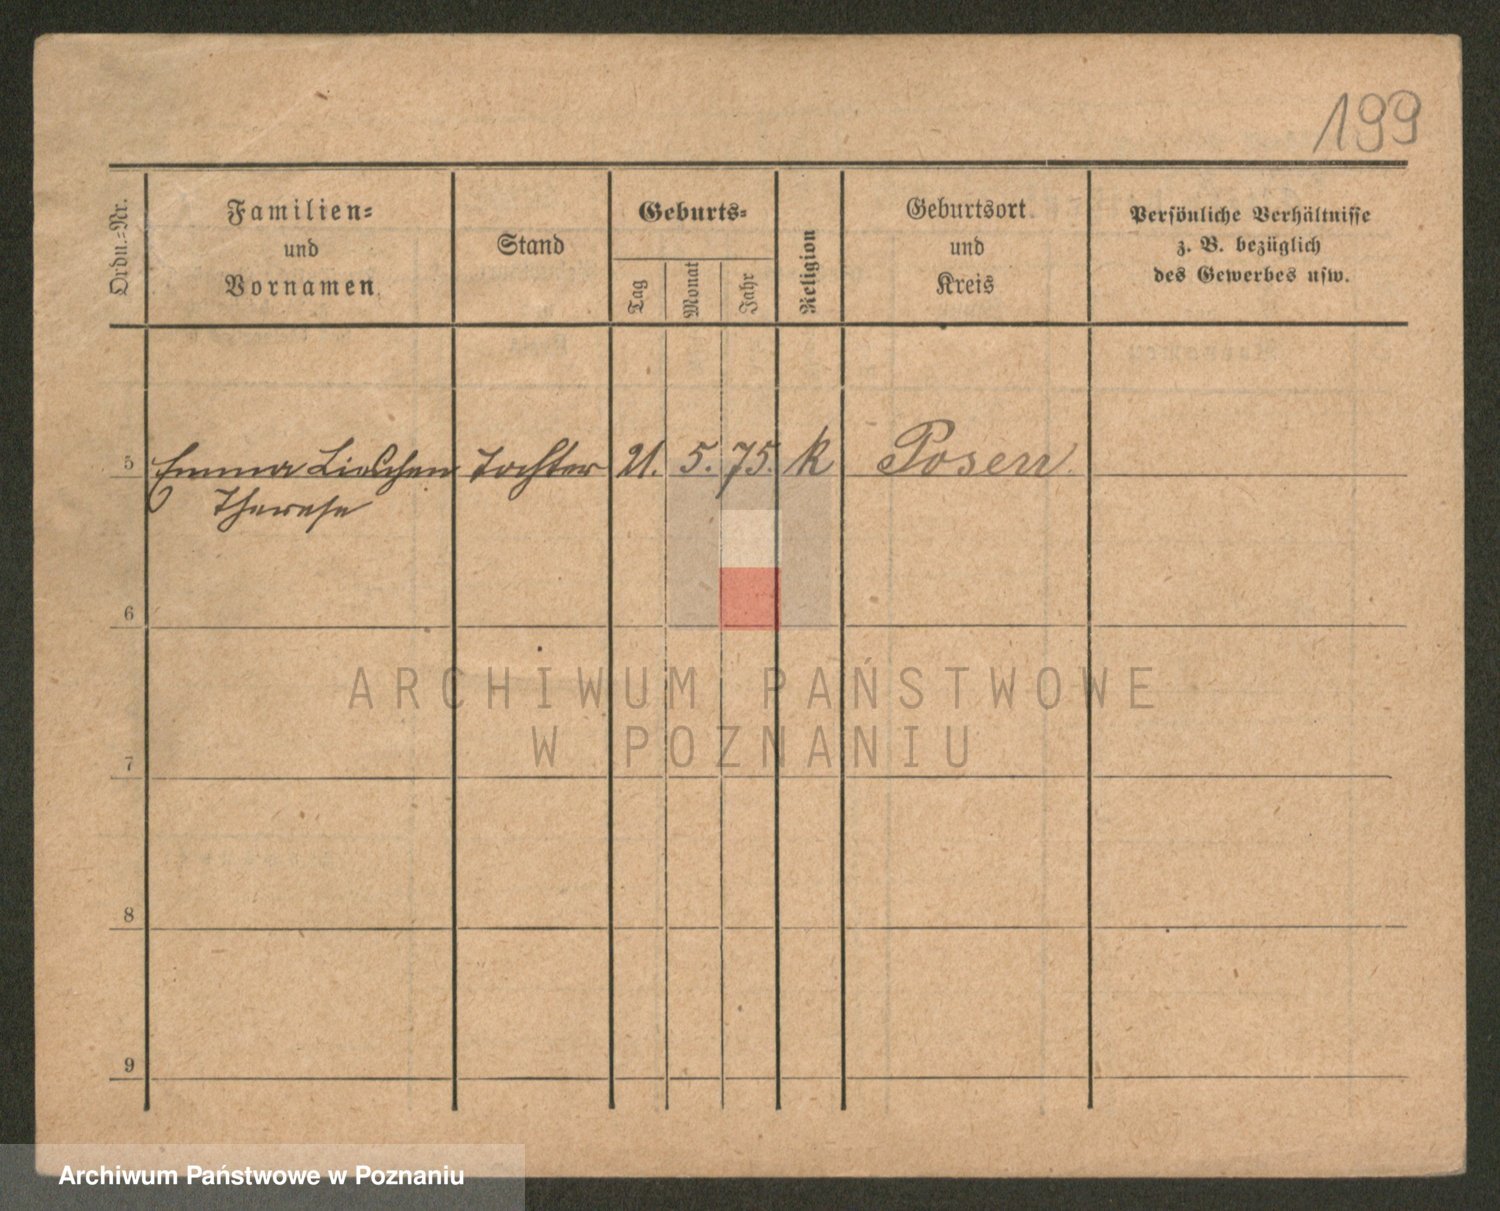 199
Ordn.=Nr.
Familien=
und
Vornamen
Stand
Geburts=
Tag
Monat
Jahr
Religion
Geburtsort
und
Kreis
Persönliche Verhältnisse
z. B. bezüglich
des Gewerbes usw.
5 Emma Lieschen Tochter 21. 5. 75. k Posen
Therese
6
ARCHIWUM PAŃSTWOWE
W POZNANIU
7
8
9
Archiwum Państwowe w Poznaniu